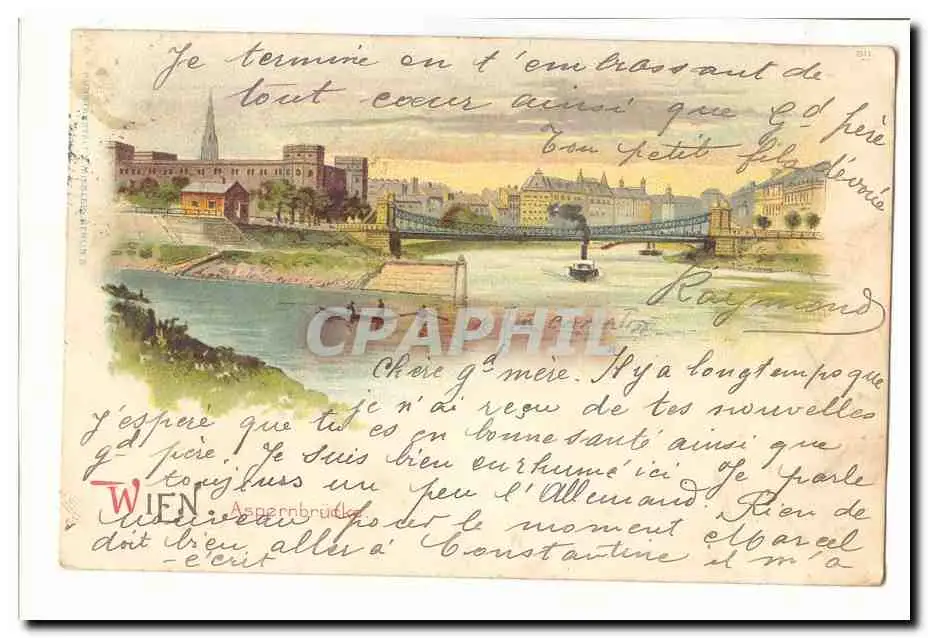 Je termine en t'embrassant de
tout cœur ainsi que Gd père
Ton petit fils dévoué
Raymond
CPAPHIL
Chère gd mère. Il y a longtemps que
je n'ai reçu de tes nouvelles
J'espère que tu es en bonne santé ainsi que
gd père. Je suis bien enrhumé ici Je parle
toujours un peu l'Allemand. Rien de
WIEN.
Aspernbrücke.
nouveau pour le moment Marcel
doit bien aller à Constantine il m'a
écrit